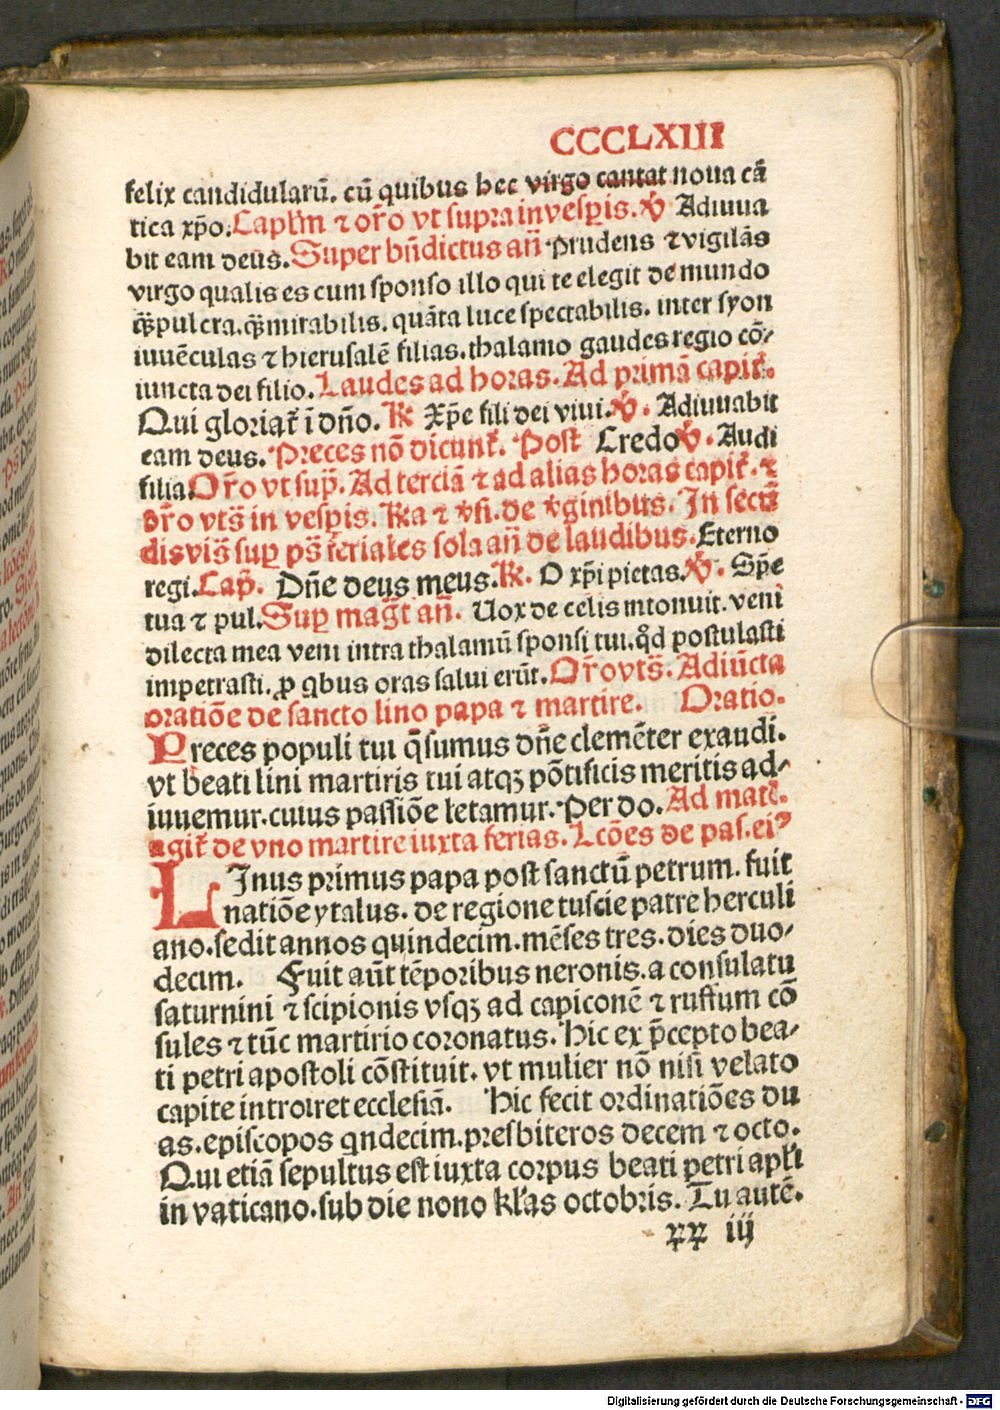 CCCLXIII
felix candidularū. cū quibus hec virgo cantat noua cā
tica xp̄o. Capl̄m ⁊ or̄o vt supra in vesp̄is. ℣ Adiuua
bit eam deus. Super bn̄dictus an̄ Prudens ⁊ vigilās
virgo qualis es cum sponso illo qui te elegit de mundo
q̄ȝ pulcra. q̄ȝ mirabilis. quāta luce spectabilis. inter syon
iuuēculas ⁊ hierusalē filias. thalamo gaudes regio cō-
iuncta dei filio. Laudes ad horas. Ad primā capit̄.
Qui gloriat̄ ī dn̄o. ℟ Xp̄e fili dei viui. ℣. Adiuuabit
eam deus. Preces nō dicunt̄. Post Credo ℣. Audi
filia Or̄o vt sup̄. Ad terciā ⁊ ad alias horas capit̄. ⁊
or̄o vts̄ in vesp̄is. ℟a ⁊ v̄si. de v̄ginibus. In secūdis
vis̄ sup̄ ps̄ feriales sola an̄ de laudibus. Eterno
regi. Cap̄. Dn̄e deus meus. ℟. O xp̄i pietas. ℣. Sp̄e
tua ⁊ pul. Sup̄ maḡt an̄. Uox de celis intonuit. veni
dilecta mea veni intra thalamū sponsi tui. qd̄ postulasti
impetrasti. ꝓ qbus oras salui erūt. Or̄o vts̄. Adiūcta
oratiōe de sancto lino papa ⁊ martire. Oratio.
Preces populi tui q̄sumus dn̄e clemēter exaudi.
vt beati lini martiris tui atqȝ pōtificis meritis ad-
iuuemur. cuius passiōe letamur. Per do. Ad mat̄.
agit̄ de vno martire iuxta ferias. Lcōes de pas. eiꝰ
LInus primus papa post sanctū petrum. fuit
natiōe ytalus. de regione tuscie patre herculi
ano. sedit annos quindecim. mēses tres. dies duo-
decim. Fuit aūt tēporibus neronis. a consulatu
saturnini ⁊ scipionis vsqȝ ad capiconē ⁊ ruffum cō
sules ⁊ tūc martirio coronatus. Hic ex p̄cepto bea-
ti petri apostoli cōstituit. vt mulier nō nisi velato
capite introiret ecclesiā. Hic fecit ordinatiōes du
as. episcopos qndecim. presbiteros decem ⁊ octo.
Qui etiā sepultus est iuxta corpus beati petri apl̄i
in vaticano. sub die nono kl̄as octobris. Tu autē.
ꝝꝝ iij
Digitalisierung gefördert durch die Deutsche Forschungsgemeinschaft - DFG